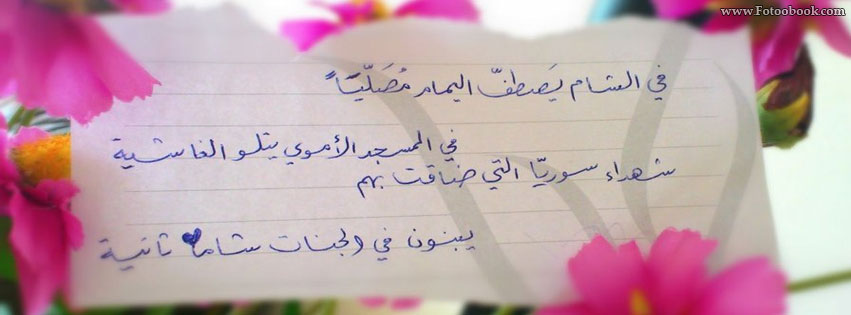 www.Fotoobook.com
في الشام يَصطفّ اليمام مُصَلّيَاً
في المسجد الأموي يتلو الغاشية
شهداء سوريّا التي ضاقت بهم
يبنون في الجنات شاماً ثانية